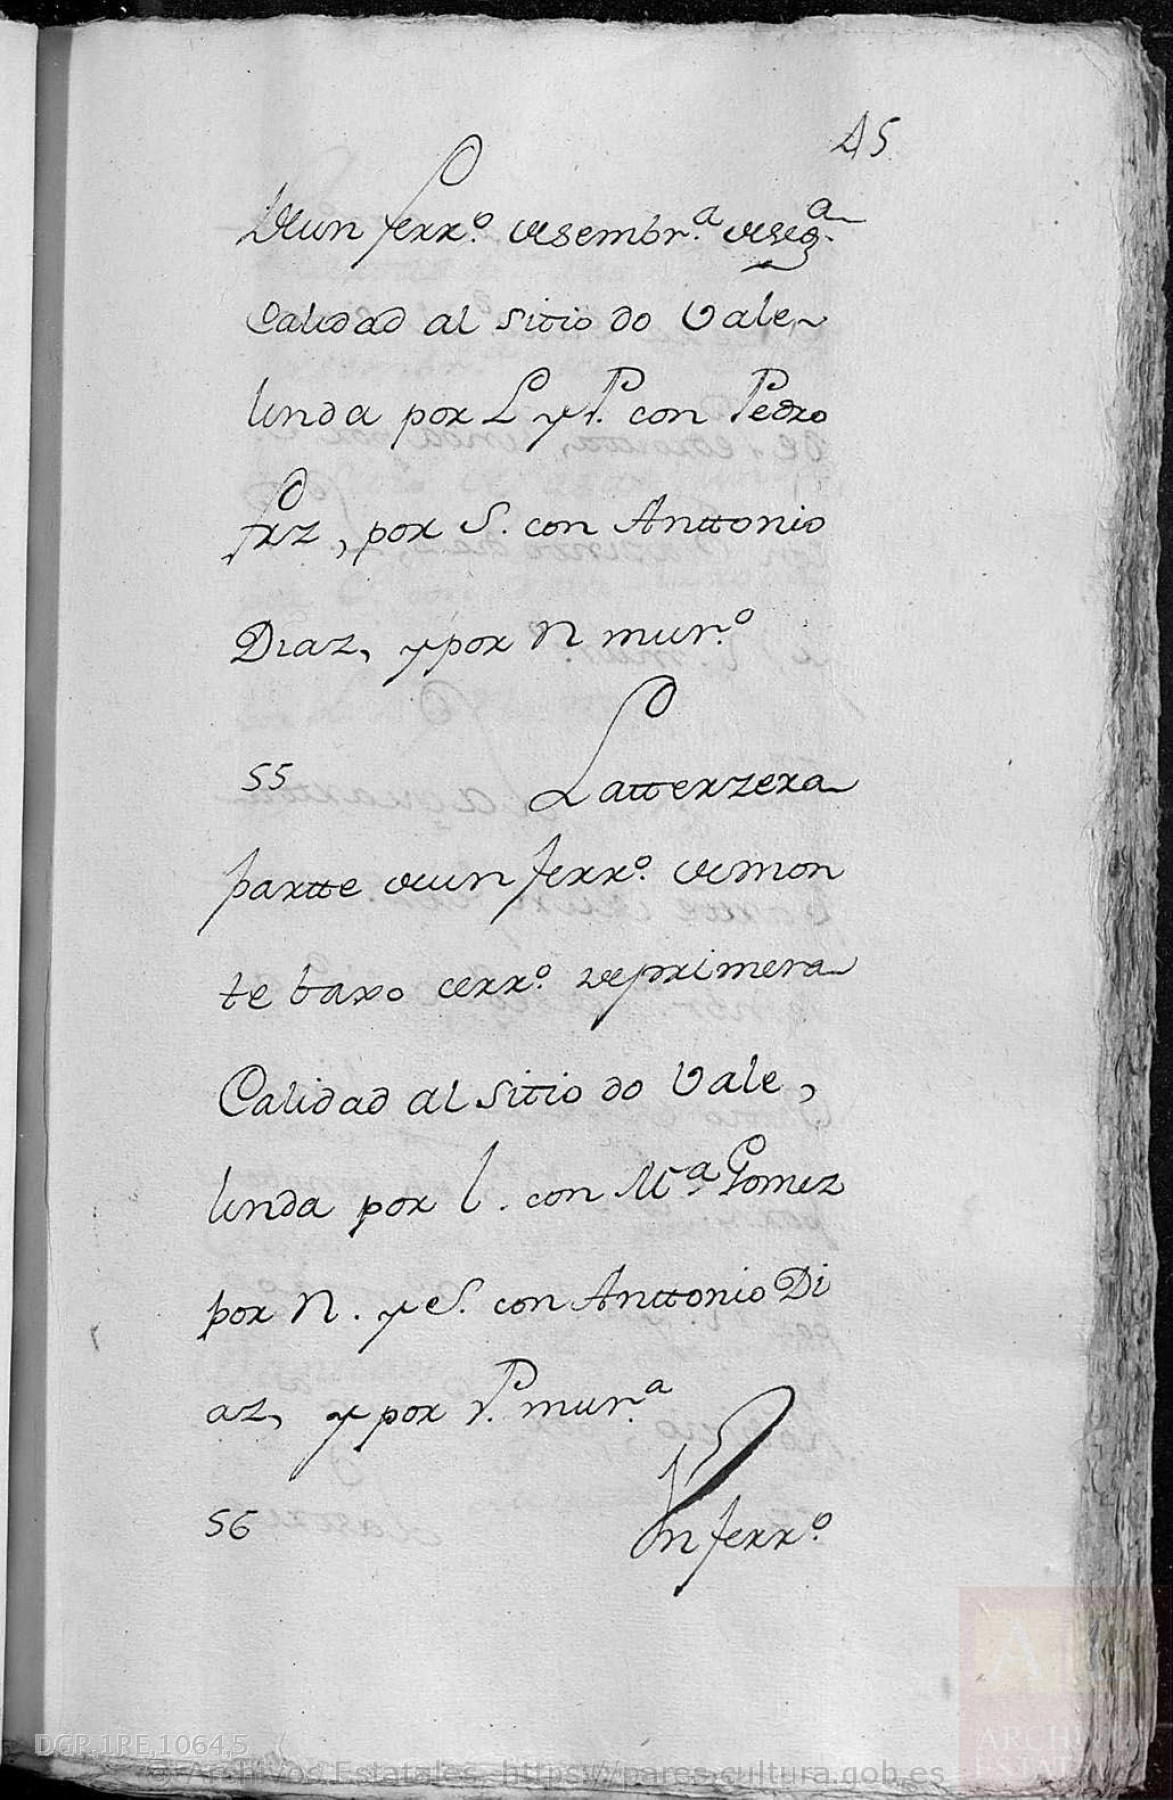 45
Deun ferr.º desembr.ª deseg.ª
Calidad al sitio do Vale,
linda por L y P. con Pedro
frz, por S. con Anttonio
Diaz, y por N mur.º
55 Latterzera
partte deun ferr.º demon
te baxo cerr.º deprimera
Calidad al sitio do Vale,
linda por l. con M.ª Gomez
por N. y S. con Anttonio Di
az, y por P. mur.ª
56 Un ferr.º
DGR,1RE,1064,5
© Archivos Estatales, https://pares.cultura.gob.es